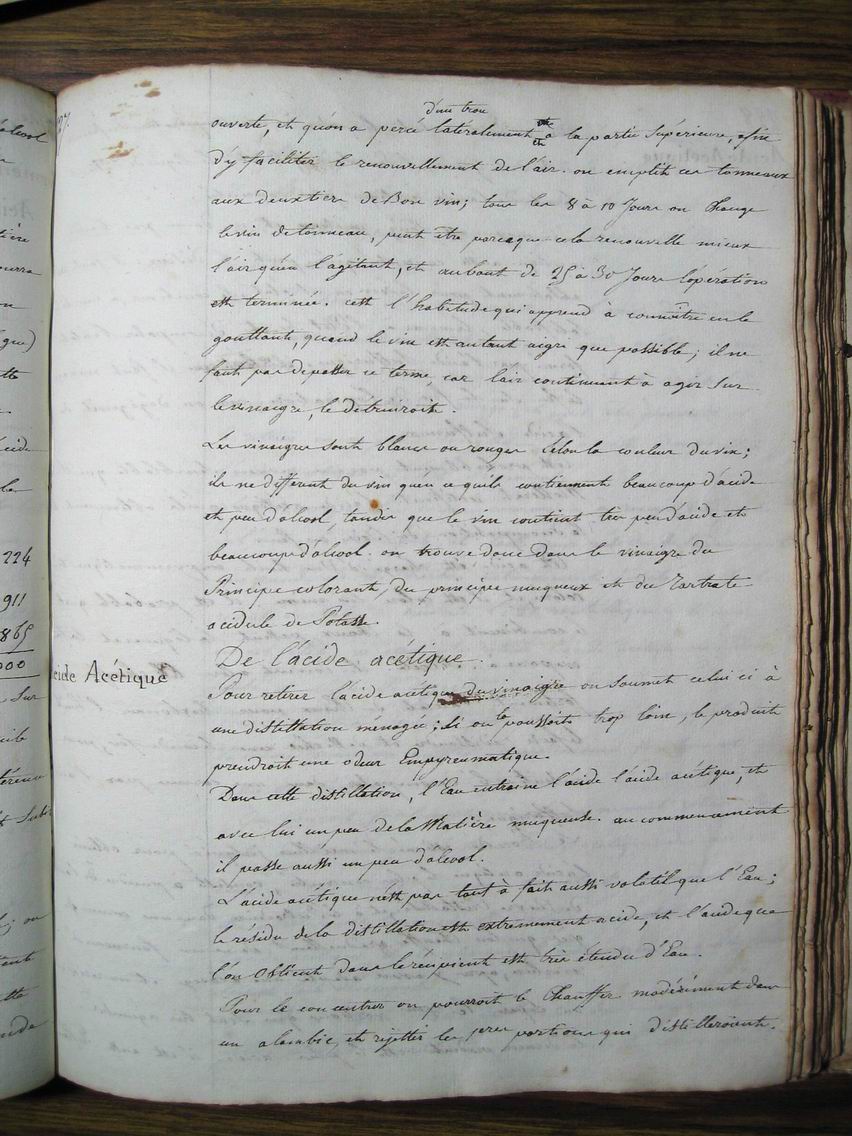 27.
d'un trou
ouverte, et qu'on a percé latéralement à la partie supérieure, afin
d'y faciliter le renouvellement de l'air. on emplit ces tonneaux
aux deux tiers de Bon vin; tous les 8 à 10 Jours on Change
le vin de tonneau, peut être parceque cela renouvelle mieux
l'air qu'en l'agitant, et au bout de 25 à 30 Jours l'opération
est terminée. c'est l'habitude qui apprend à connoître en le
gouttant, quand le vin est autant aigre que possible; il ne
faut pas dépasser ce terme, car l'air continuant à agir sur
le vinaigre, le détruiroit.
Les vinaigres sont blancs ou rouges selon la couleur du vin;
ils ne diffèrent du vin qu'en ce qu'ils contiennent beaucoup d'acide
et peu d'alcool, tandis que le vin contient très peu d'acide et
beaucoup d'alcool. on trouve donc dans le vinaigre du
Principe colorant, du principe muqueux et du Tartrate
acidule de Potasse.
De l'acide acétique.
cide Acétique
Pour retirer l'acide acétique du vinaigre on soumet celui ci à
une distillation ménagée; si on la poussoit trop loin, le produit
prendroit une odeur Empyreumatique.
Dans cette distillation, l'Eau entraine l'acide l'acide acétique, et
avec lui un peu de la Matière muqueuse. au commencement
il passe aussi un peu d'alcool.
L'acide acétique n'est pas tout à fait aussi volatil que l'Eau;
le résidu de la distillation est extrèmement acide, et l'acide que
l'on obtient dans le récipient est très étendu d'Eau.
Pour le concentrer on pourroit le Chauffer modérément dans
un alambic, et rejetter les 1eres portions qui distilleroient.